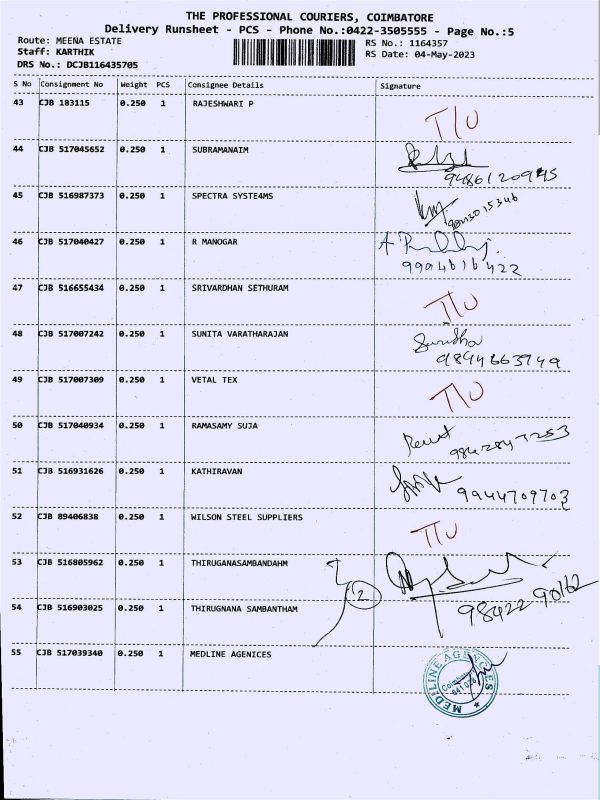 THE PROFESSIONAL COURIERS, COIMBATORE
Delivery Runsheet - PCS - Phone No.:0422-3505555 - Page No.:5
Route: MEENA ESTATE
RS No.: 1164357
Staff: KARTHIK
RS Date: 04-May-2023
DRS No.: DCJB116435705
S No Consignment No Weight PCS Consignee Details Signature
43 CJB 183115 0.250 1 RAJESHWARI P
44 CJB 517045652 0.250 1 SUBRAMANAIM
45 CJB 516987373 0.250 1 SPECTRA SYSTE4MS
46 CJB 517040427 0.250 1 R MANOGAR
9994616422
47 CJB 516655434 0.250 1 SRIVARDHAN SETHURAM
48 CJB 517007242 0.250 1 SUNITA VARATHARAJAN
49 CJB 517007309 0.250 1 VETAL TEX
50 CJB 517040934 0.250 1 RAMASAMY SUJA
9842847253
51 CJB 516931626 0.250 1 KATHIRAVAN
9944709703
52 CJB 89406838 0.250 1 WILSON STEEL SUPPLIERS
53 CJB 516805962 0.250 1 THIRUGANASAMBANDAHM
2
54 CJB 516903025 0.250 1 THIRUGNANA SAMBANTHAM
98422 90162
55 CJB 517039340 0.250 1 MEDLINE AGENICES